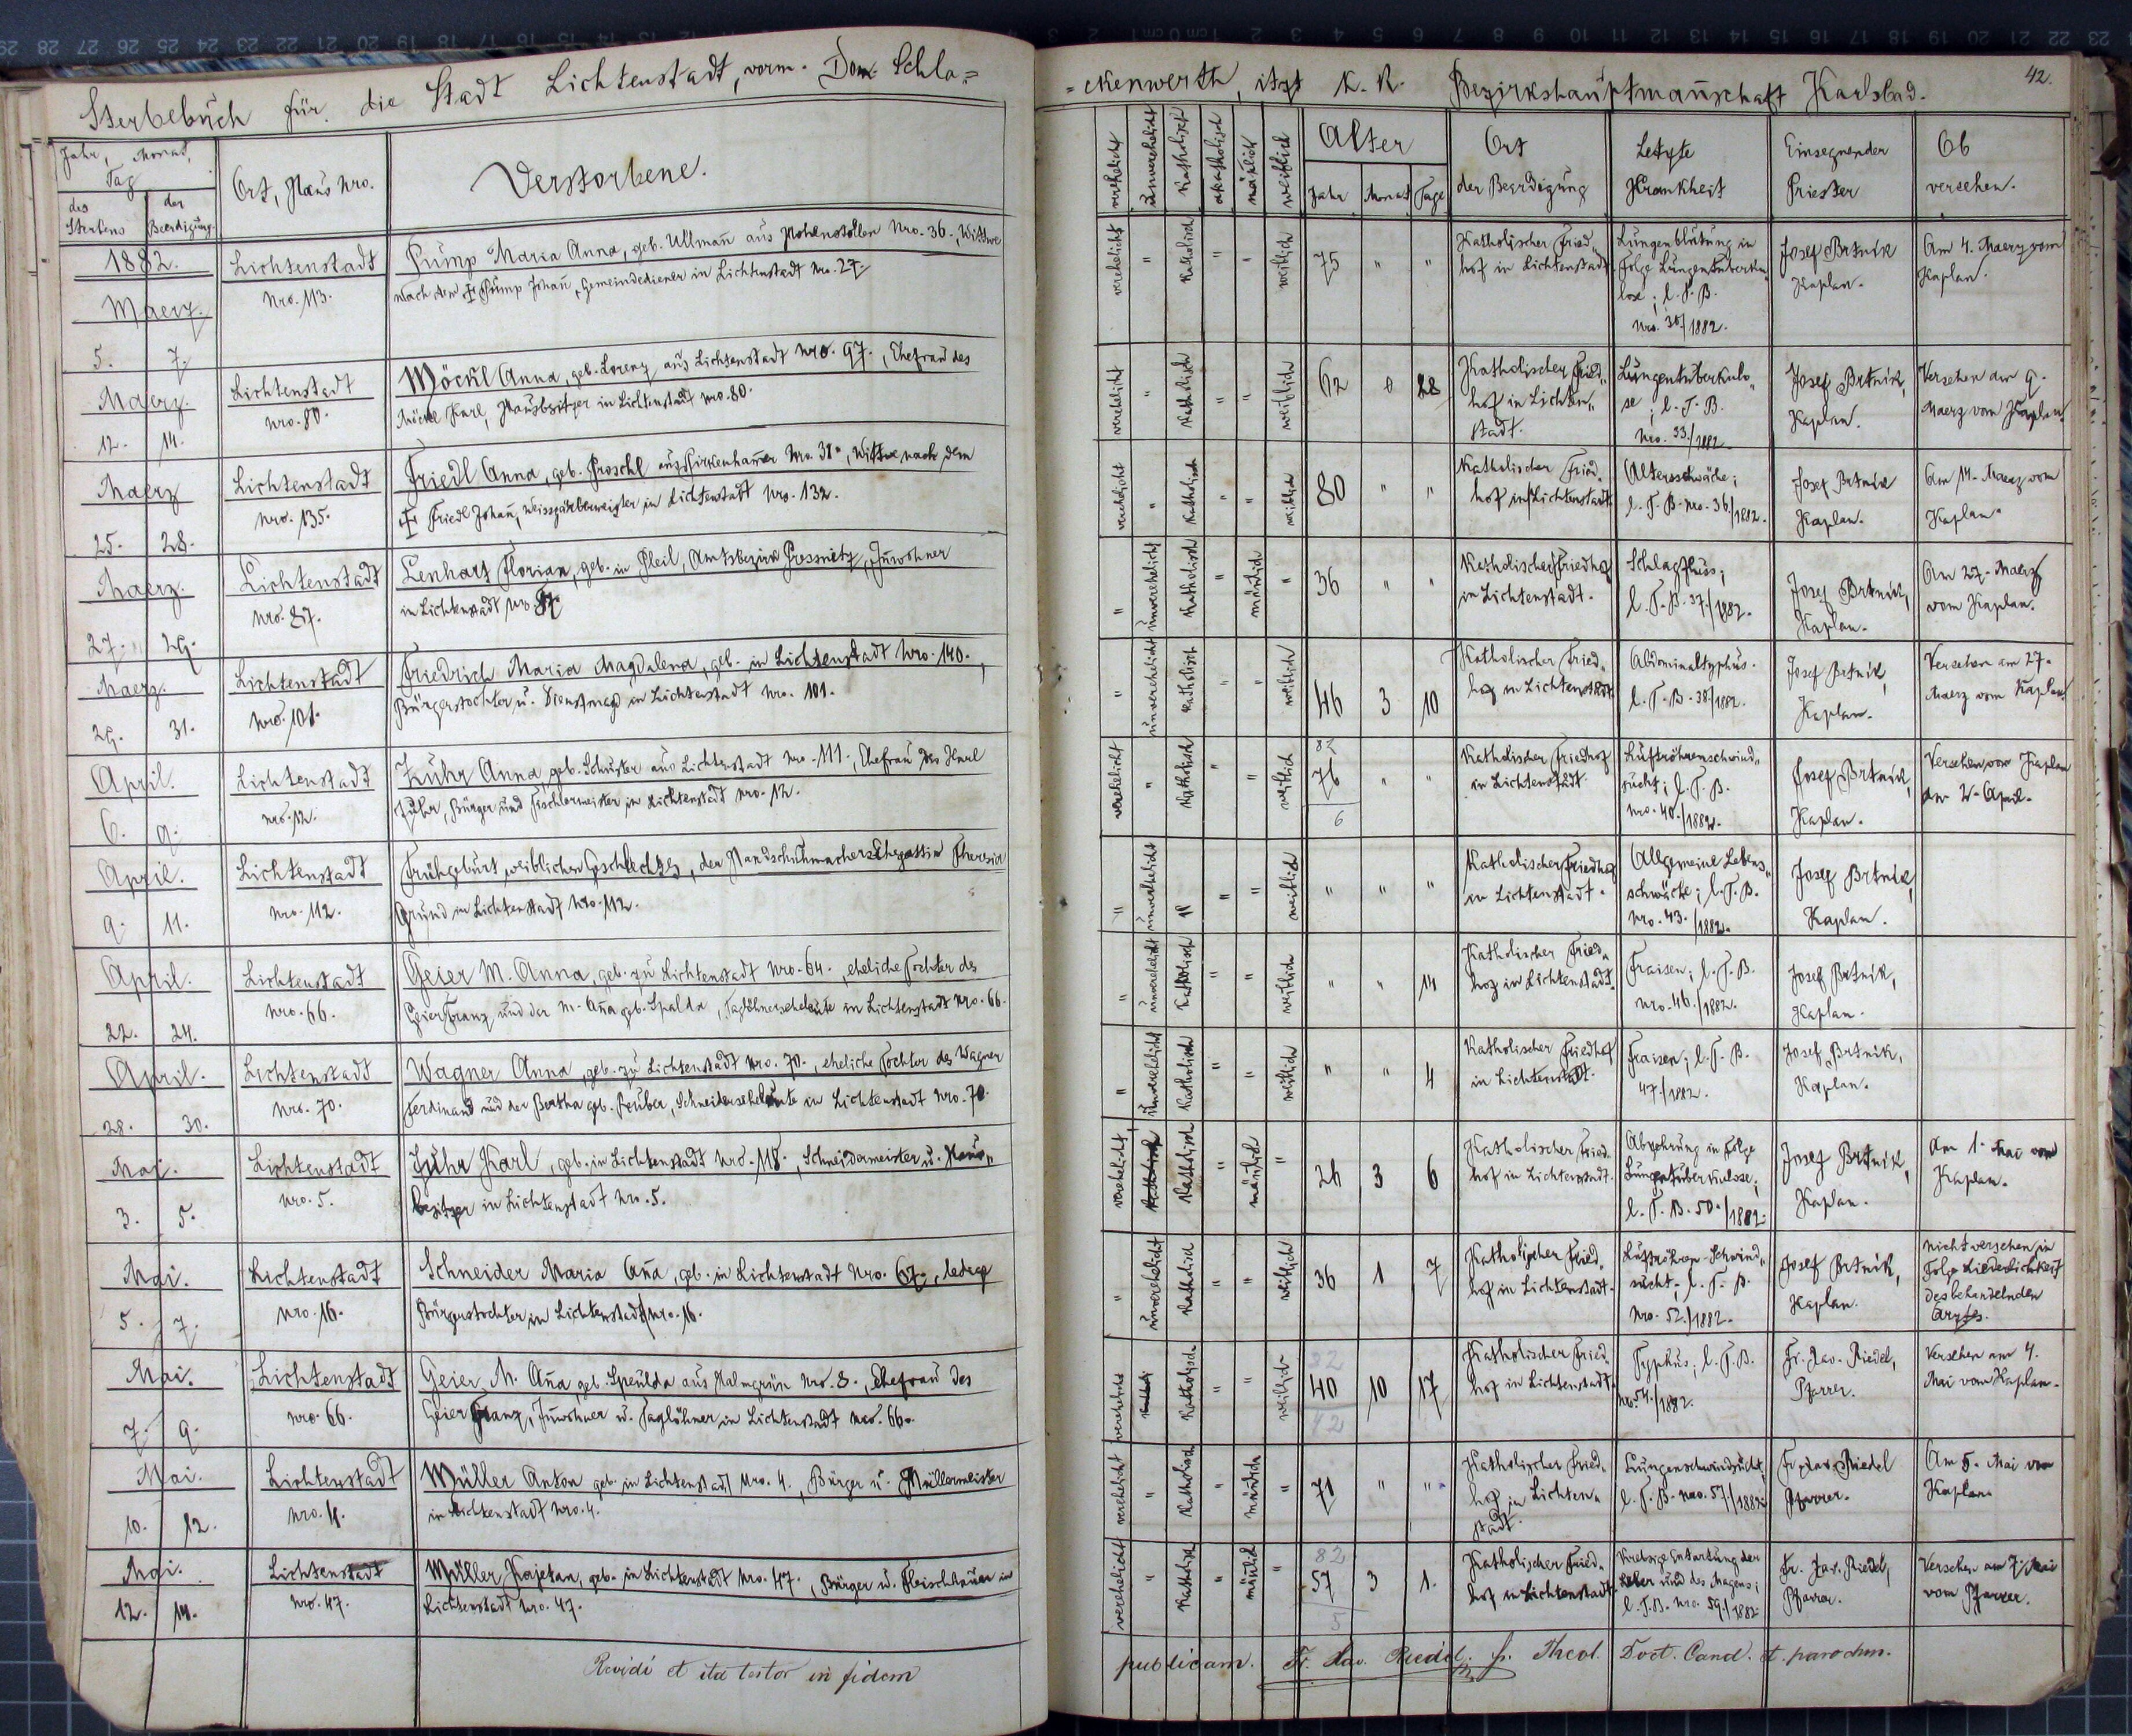 Sterbebuch für die Stadt Lichtenstadt, vorm. Dom. Schla=
=ckenwerth, itzt K. K. Bezirkshauptmañschaft Karlsbad.
42.
Jahr, Monat, Tag
des Sterbens
der Beerdigung
Ort, Haus Nro.
Verstorbene.
verehelicht
unverehelicht
Katholisch
akatholisch
mänlich
weiblich
Alter
Jahr
Monat
Tage
Ort
der Beerdigung
Letzte
Krankheit
Einsegnender
Priester
Ob
versehen.
1882.
Maerz.
5. 7.
Lichtenstadt
Nro. 113.
Pump Maria Anna, geb. Ullmañ aus Hohenstollen Nro. 36., Wittwe
nach dem ‡ Pump Johañ, Gemeindediener in Lichtenstadt Nro. 27.
verehelicht " Katholisch " " weiblich
75 " "
Katholischer Fried„
hof in Lichtenstadt.
Lungenblutung in
Folge Lungentuberku„
lose; l. T. B.
Nro. 30./1882.
Josef Brtnik
Kaplan.
Am 4. Maerz vom
Kaplan.
Maerz.
12. 14.
Lichtenstadt
Nro. 80.
Möckl Anna, geb. Lorenz aus Lichtenstadt Nro. 97., Ehefrau des
Möckl Karl, Hausbesitzer in Lichtenstadt Nro. 80.
verehelicht " Katholisch " " weiblich
62 0 28
Katholischer Fried„
hof in Lichten„
stadt.
Lungentuberkulo„
se; l. T. B.
Nro. 33./1882.
Josef Brtnik,
Kaplan.
Versehen am 9.
Maerz vom Kaplan.
Maerz
25. 28.
Lichtenstadt
Nro. 135.
Friedl Anna, geb. Proschl aus Pirkenhamer Nro. 31., Wittwe nach dem
‡ Friedl Johañ, Weissgärbermeister in Lichtenstadt Nro. 132.
verehelicht " Katholisch " " weiblich
80 " "
Katholischer Fried„
hof in Lichtenstadt.
Altersschwäche;
l. T. B. Nro. 36./1882.
Josef Brtnik
Kaplan.
Am 14. Maerz vom
Kaplan.
Maerz.
27. 29.
Lichtenstadt
Nro. 87.
Lenhart Florian, geb. in Pleil, Amtsbezirk Pressnitz, Iñwohner
in Lichtenstadt Nro. 87.
" unverehelicht Katholisch " mänlich "
36 " "
Katholischer Friedhof
in Lichtenstadt.
Schlagfluss;
l. T. B. 37./1882.
Josef Brtnik,
Kaplan.
Am 27. Maerz
vom Kaplan.
Maerz.
29. 31.
Lichtenstadt
Nro. 101.
Friedrich Maria Magdalena, geb. in Lichtenstadt Nro. 140.,
Bürgerstochter u. Dienstmagd in Lichtenstadt Nro. 101.
" unverehelicht Katholisch " " weiblich
46 3 10
Katholischer Fried„
hof in Lichtenstadt.
Abdominaltyphus.
l. T. B. 38./1882.
Josef Brtnik,
Kaplan.
Versehen am 27.
Maerz vom Kaplan.
April.
6. 9.
Lichtenstadt
Nro. 12.
Zuhr Anna, geb. Schuster aus Lichtenstadt Nro. 111., Ehefrau des Karl
Zuhr, Bürger und Tischlermeister in Lichtenstadt Nro. 12.
verehelicht " Katholisch " " weiblich
82
76 " "
6
Katholischer Friedhof
in Lichtenstadt.
Luftröhrenschwind„
sucht; l. T. B.
Nro. 40./1882.
Josef Brtnik,
Kaplan.
Versehen vom Kaplan
am 2. April.
April.
9. 11.
Lichtenstadt
Nro. 112.
Frühgeburt, weiblichen Geschlechtes, der Handschuhmachersehegattin Theresia
Grund in Lichtenstadt Nro. 112.
" unverehelicht " " " weiblich
" " "
Katholischer Friedhof
in Lichtenstadt.
Allgemeine Lebens„
schwäche; l. T. B.
Nro. 43./1882.
Josef Brtnik,
Kaplan.
April.
22. 24.
Lichtenstadt
Nro. 66.
Geier M. Anna, geb. zu Lichtenstadt Nro. 64., eheliche Tochter des
Geier Franz und der M. Aña geb. Spalda, Taglöhnerseheleute in Lichtenstadt Nro. 66.
" unverehelicht Katholisch " " weiblich
" " 14
Katholischer Fried„
hof in Lichtenstadt.
Fraisen; l. T. B.
Nro. 46./1882.
Josef Brtnik,
Kaplan.
April.
28. 30.
Lichtenstadt
Nro. 70.
Wagner Anna, geb. zu Lichtenstadt Nro. 70., eheliche Tochter des Wagner
Ferdinand und der Bertha geb. Reuber, Schneiderseheleute in Lichtenstadt Nro. 70.
" unverehelicht Katholisch " " weiblich
" " 4
Katholischer Friedhof
in Lichtenstadt.
Fraisen; l. T. B.
47./1882.
Josef Brtnik,
Kaplan.
Mai.
3. 5.
Lichtenstadt
Nro. 5.
Zuhr Karl, geb. in Lichtenstadt Nro. 118., Schneidermeister u. Haus„
besitzer in Lichtenstadt Nro. 5.
verehelicht Katholisch " mänlich "
26 3 6
Katholischer Fried„
hof in Lichtenstadt.
Abzehrung in Folge
Lungentuberkulose;
l. T. B. 50./1882.
Josef Brtnik,
Kaplan.
Am 1. Mai vom
Kaplan.
Mai.
5. 7.
Lichtenstadt
Nro. 16.
Schneider Maria Aña, geb. in Lichtenstadt Nro. 67., ledige
Bürgerstochter in Lichtenstadt Nro. 16.
" unverehelicht Katholisch " " weiblich
36 1 7
Katholischer Fried„
hof in Lichtenstadt.
Luftröhren-Schwind„
sucht; l. T. B.
Nro. 52./1882.
Josef Brtnik,
Kaplan.
Nicht versehen in
Folge Liederlichkeit
des behandelnden
Arztes.
Mai.
7. 9.
Lichtenstadt
Nro. 66.
Geier M. Aña geb. Speulda aus Halmgrün Nro. 8., Ehefrau des
Geier Franz, Iñwohner u. Taglöhner in Lichtenstadt Nro. 66.
verehelicht Katholisch " " weiblich
82
40 10 17
42
Katholischer Fried„
hof in Lichtenstadt.
Typhus; l. T. B.
Nro. 54./1882.
Fr. Xav. Riedel,
Pfarrer.
Versehen am 4.
Mai vom Kaplan.
Mai.
10. 12.
Lichtenstadt
Nro. 4.
Müller Anton geb. in Lichtenstadt Nro. 4., Bürger u. Müllermeister
in Lichtenstadt Nro. 4.
verehelicht " Katholisch " mänlich "
71 " "
Katholischer Fried„
hof in Lichten„
stadt.
Lungenschwindsucht;
l. T. B. Nro. 57./1882.
Fr. Xav. Riedel
Pfarrer.
Am 5. Mai vom
Kaplan.
Mai.
12. 14.
Lichtenstadt
Nro. 47.
Müller Kajetan, geb. in Lichtenstadt Nro. 47., Bürger u. Fleischhauer in
Lichtenstadt Nro. 47.
verehelicht " Katholisch " mänlich "
82
57 3 1.
5
Katholischer Fried„
hof in Lichtenstadt.
Krebsige Entartung der
Leber und des Magens;
l. T. B. Nro. 59./1882.
Fr. Xav. Riedel,
Pfarrer.
Versehen am 7. Mai
vom Pfarrer.
Revidi et ita testor in fidem
publicam. Fr. Xav. Riedel, Theol. Doct. Cand. et parochus.